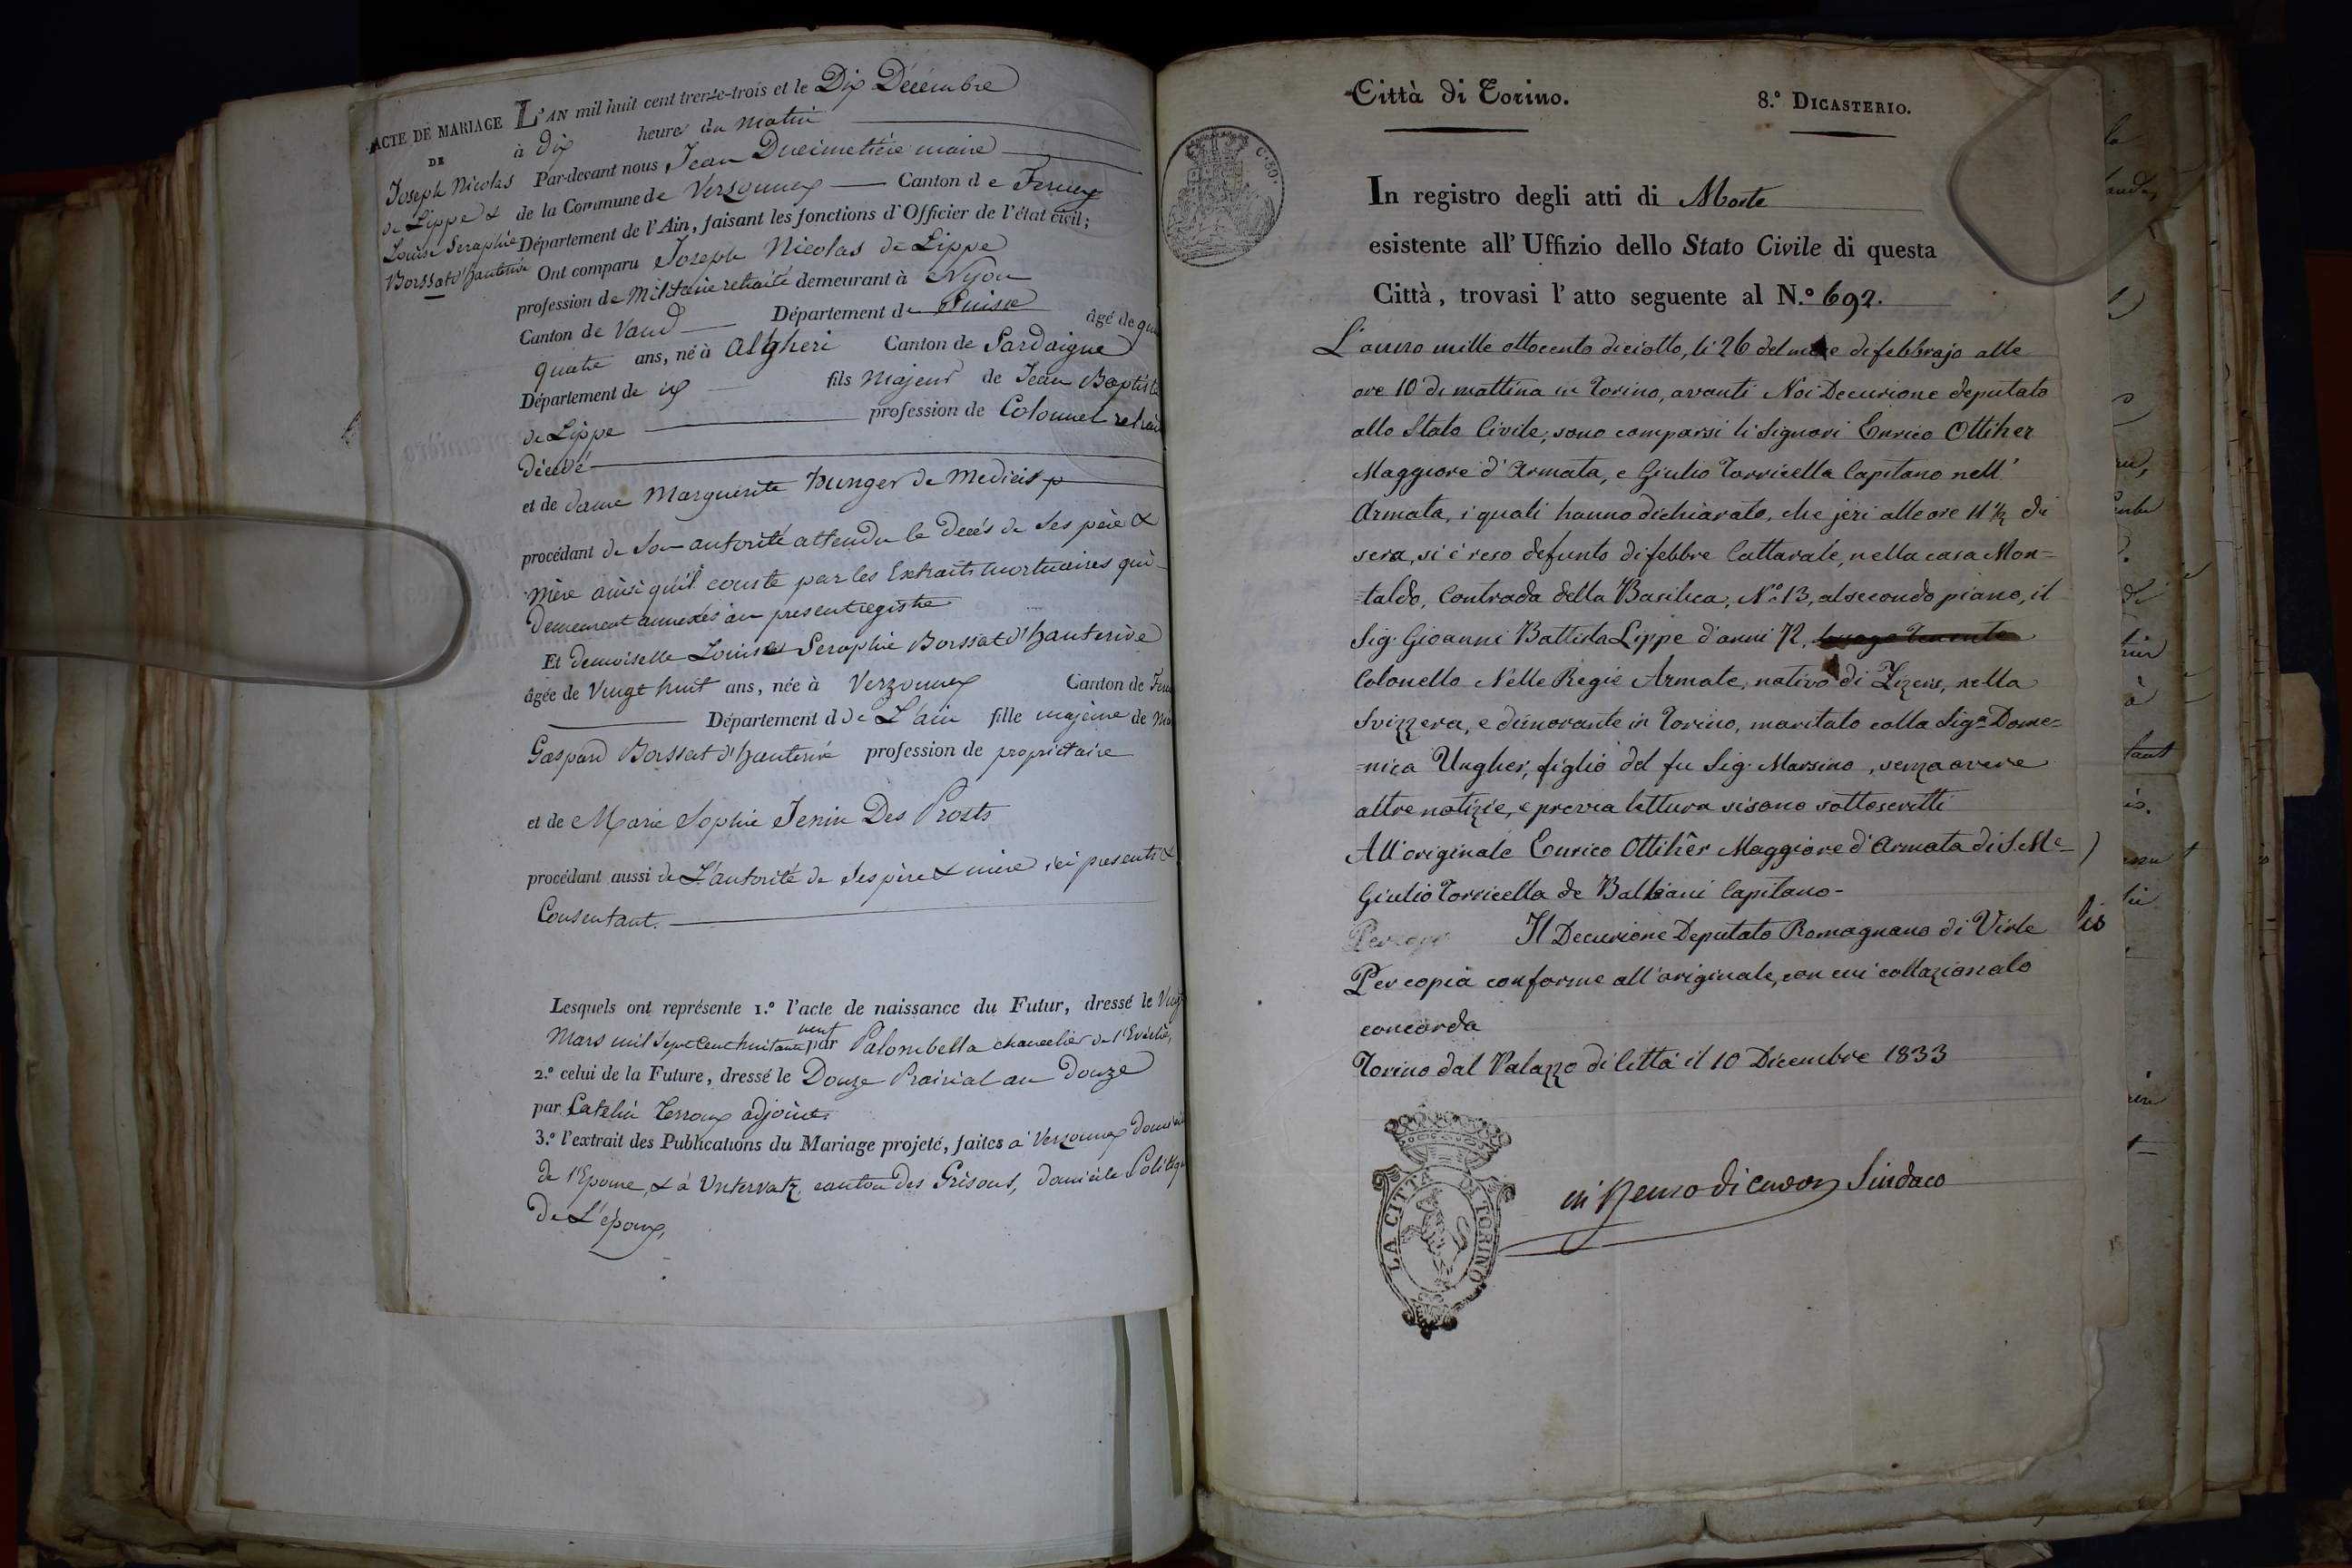 ACTE DE MARIAGE
DE
Joseph Nicolas
de Lippe &
Louise Seraphie
Borssat d'hauterive
L'AN mil huit cent trente-trois et le Dix Décembre
à dix heures du matin
Par-devant nous Jean Ducimetière maire
de la Commune de Versonnex Canton de Ferney
Département de l'Ain, faisant les fonctions d'Officier de l'état civil;
Ont comparu Joseph Nicolas de Lippe
profession de Militaire retraité demeurant à Nyon
Canton de Vaud Département de Suisse âgé de qua
quatre ans, né à Algheri Canton de Sardaigne
Département de id fils Majeur de Jean Baptiste
de Lippe profession de Colonnel retrait
décédé
et de dame Marguerite hunger de Medicis
procédant de Son autorité attendu le Decés de Ses père &
mère ainsi qu'il conste par les Extraits mortuaires qui
demeurent annexés au present registre
Et demoiselle Louise Seraphie Borssat d'hauterive
âgée de Vingt huit ans, née à Verzonnex Canton de Fern
Département d de L'ain fille majeure de
Gaspard Borssat d'hauterive profession de propriétaire
et de Marie Sophie Jenin Des Prosts
procédant aussi de L'autorité de Ses père & mère ici presents &
Consentant.
Lesquels ont représente 1.° l'acte de naissance du Futur, dressé le Vingt
Mars mil Sept Cent huitante neuf par Palombella chancelier de l'Evêché,
2.° celui de la Future, dressé le Douze Prairial an Douze
par Catelin Terroux adjoint.
3.° l'extrait des Publications du Mariage projeté, faites à Versonnex domicile
de l'Epouse, & à Untervatz canton des Grisons, domicile Politiqu
de L'époux,
Città di Torino.
8.° DICASTERIO.
C. 80.
In registro degli atti di Morte
esistente all'Uffizio dello Stato Civile di questa
Città, trovasi l'atto seguente al N.° 692.
L'anno mille ottocento diciotto, li 26 del mese di febbrajo alle
ore 10 di mattina in Torino, avanti Noi Decurione deputato
allo Stato Civile, sono comparsi li Signori Enrico Ottiher
Maggiore d'Armata, e Giulio Torricella Capitano nell'
Armata, i quali hanno dichiarato, che jeri alle ore 11 ½ di
sera, si è reso defunto di febbre Cattarale, nella casa Mon=
=taldo, Contrada della Basilica, N.° 13, al secondo piano, il
Sig. Gioanni Battista Lippe d'anni 72, luogo Tenente
Colonello Nelle Regie Armate, nativo di Zizers, nella
Svizzera, e dimorante in Torino, maritato colla Sig.a Dome=
=nica Ungher, figlio del fu Sig. Marsino, senza avere
altre notizie, e previa lettura si sono sottoscritti
All'originale Enrico Ottihêr Maggiore d'Armata di S. M.
Giulio Torricella de Balliani Capitano-
Per copi Il Decurione Deputato Romagnano di Virle
Per copia conforme all'originale, con cui collazionato
concorda
Torino dal Palazzo di Città il 10 Dicembre 1833
LA CITTA DI TORINO
Benso di Cavour Sindaco